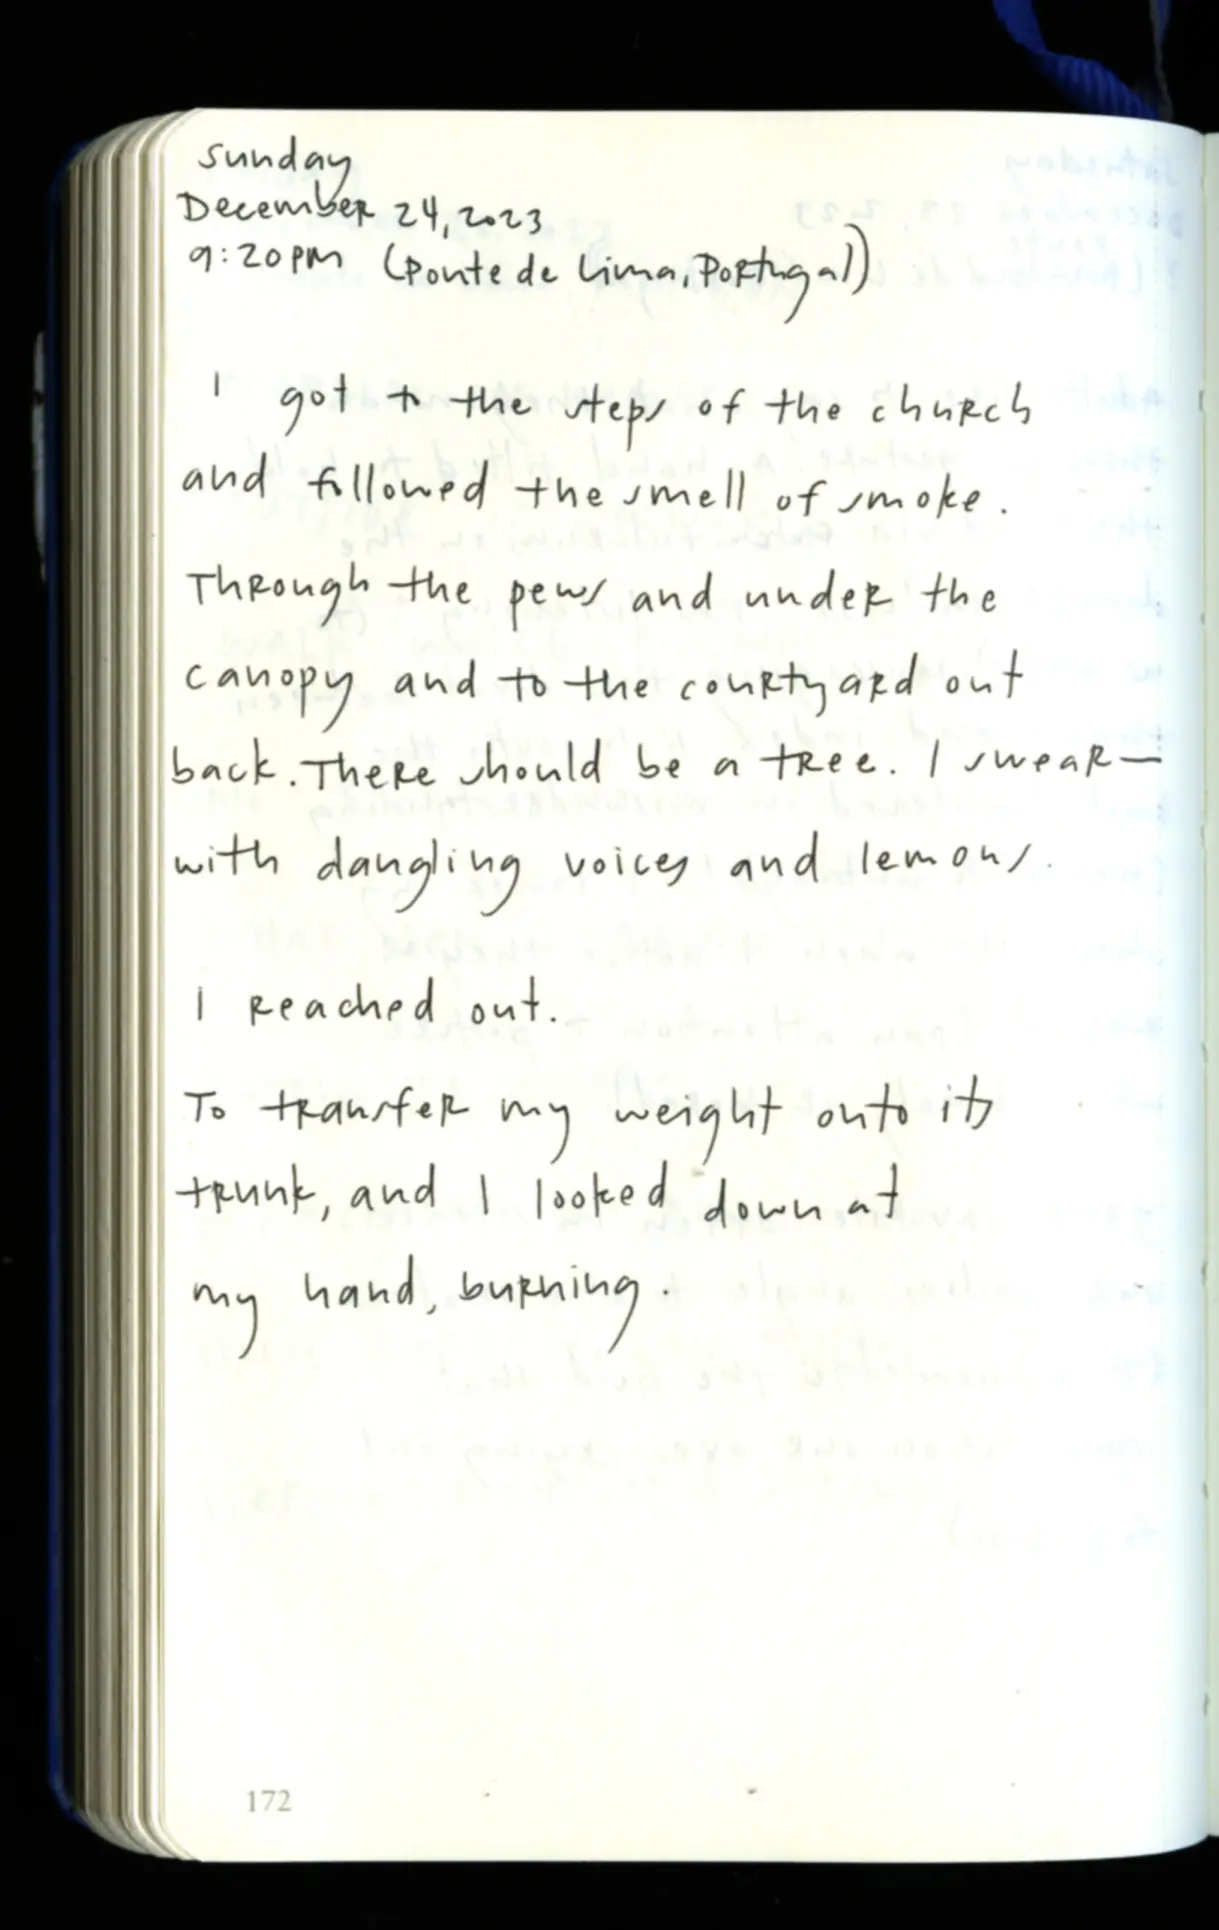 Sunday
December 24, 2023
9:20pm (Ponte de Lima, Portugal)
I got to the steps of the church
and followed the smell of smoke.
Through the pews and under the
canopy and to the courtyard out
back. There should be a tree. I swear—
with dangling voices and lemons.
I reached out.
To transfer my weight onto its
trunk, and I looked down at
my hand, burning.
172